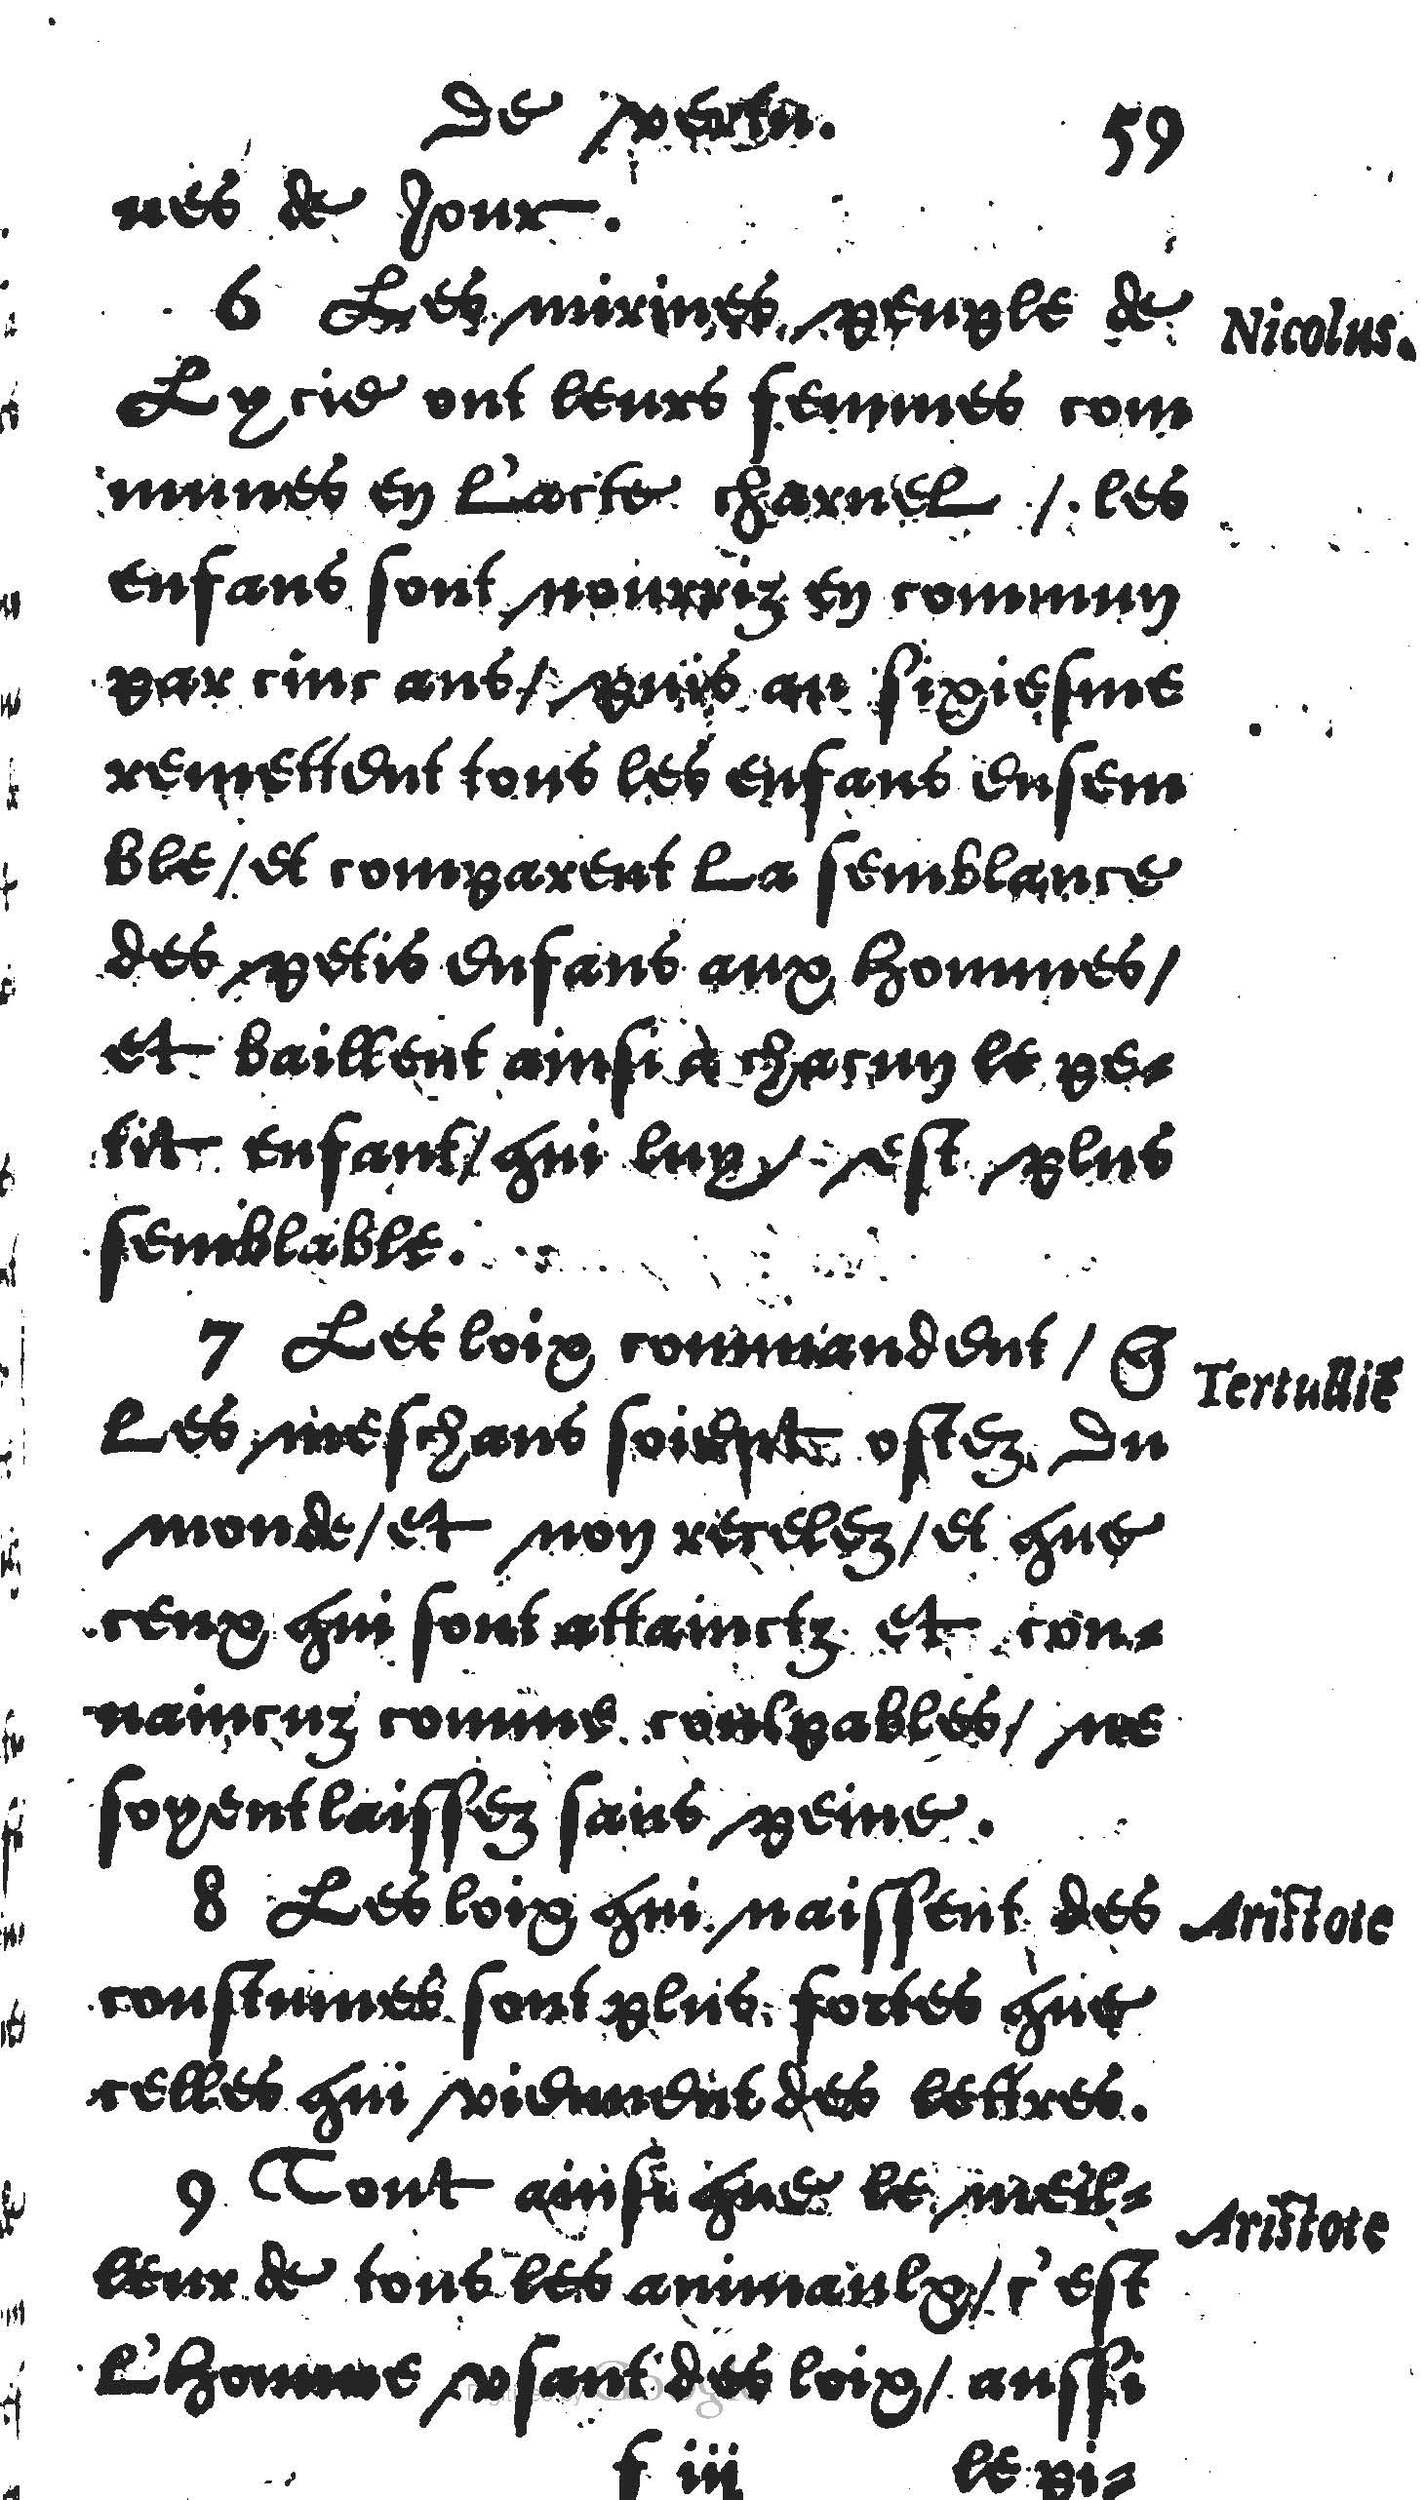 De vertu. 59
nes de Jour.
6 Les mirines peuple de
Nicolus.
Lycie ont leurs femmes com
munes en l'acte charnel / les
enfans sont nourriz en commun
par cinc ans / puis au sixiesme
remettent tous les enfans ensem
ble / et comparent la semblance
des petis enfans aux hommes /
et baillent ainsi à chacun le pe-
tit enfant / qui luy / est plus
semblable.
7 Les loix commandent / q̃
Tertulliẽ
les meschans soient ostez du
monde / et non recelez / et que
ceux qui sont attainctz et con-
uaincuz comme coulpables / ne
soyent laissez sans peine.
8 Les loix qui naissent des
Aristote
coustumes sont plus fortes que
celles qui viennent des lettres.
9 Tout ainsi que le meil-
Aristote
leur de tous les animaulx / c'est
l'homme vsant des loix / aussi
f iij le pi-